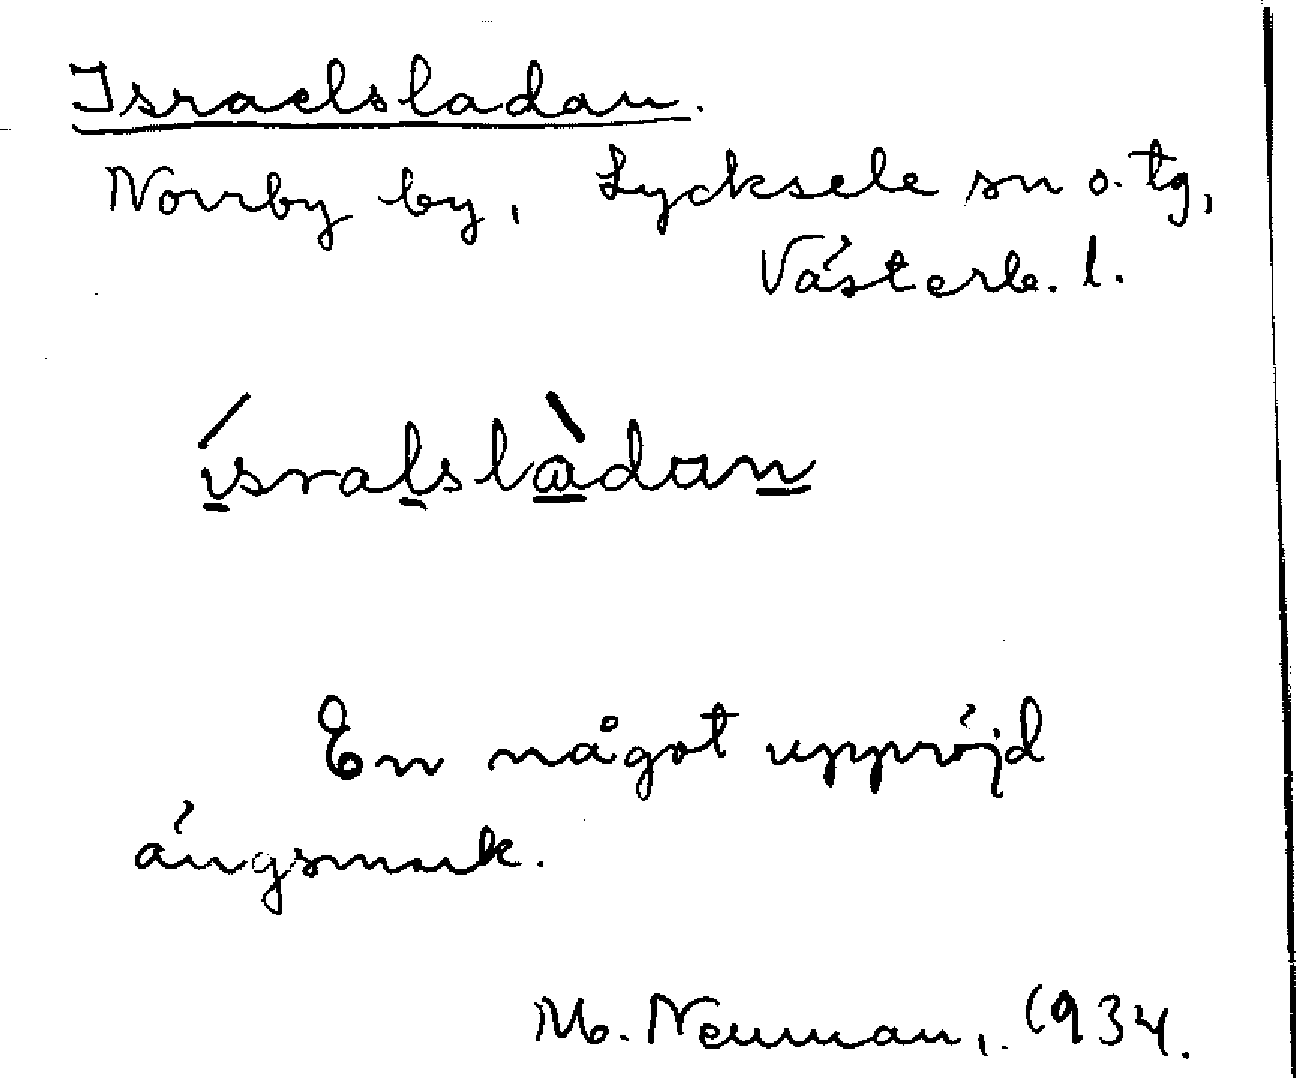 Israelsladan.
Norrby by, Lycksele sn o. tg,
Västerb. l.
ísralslàdan
En något uppröjd
ängsmark.
M. Neuman, 1934.